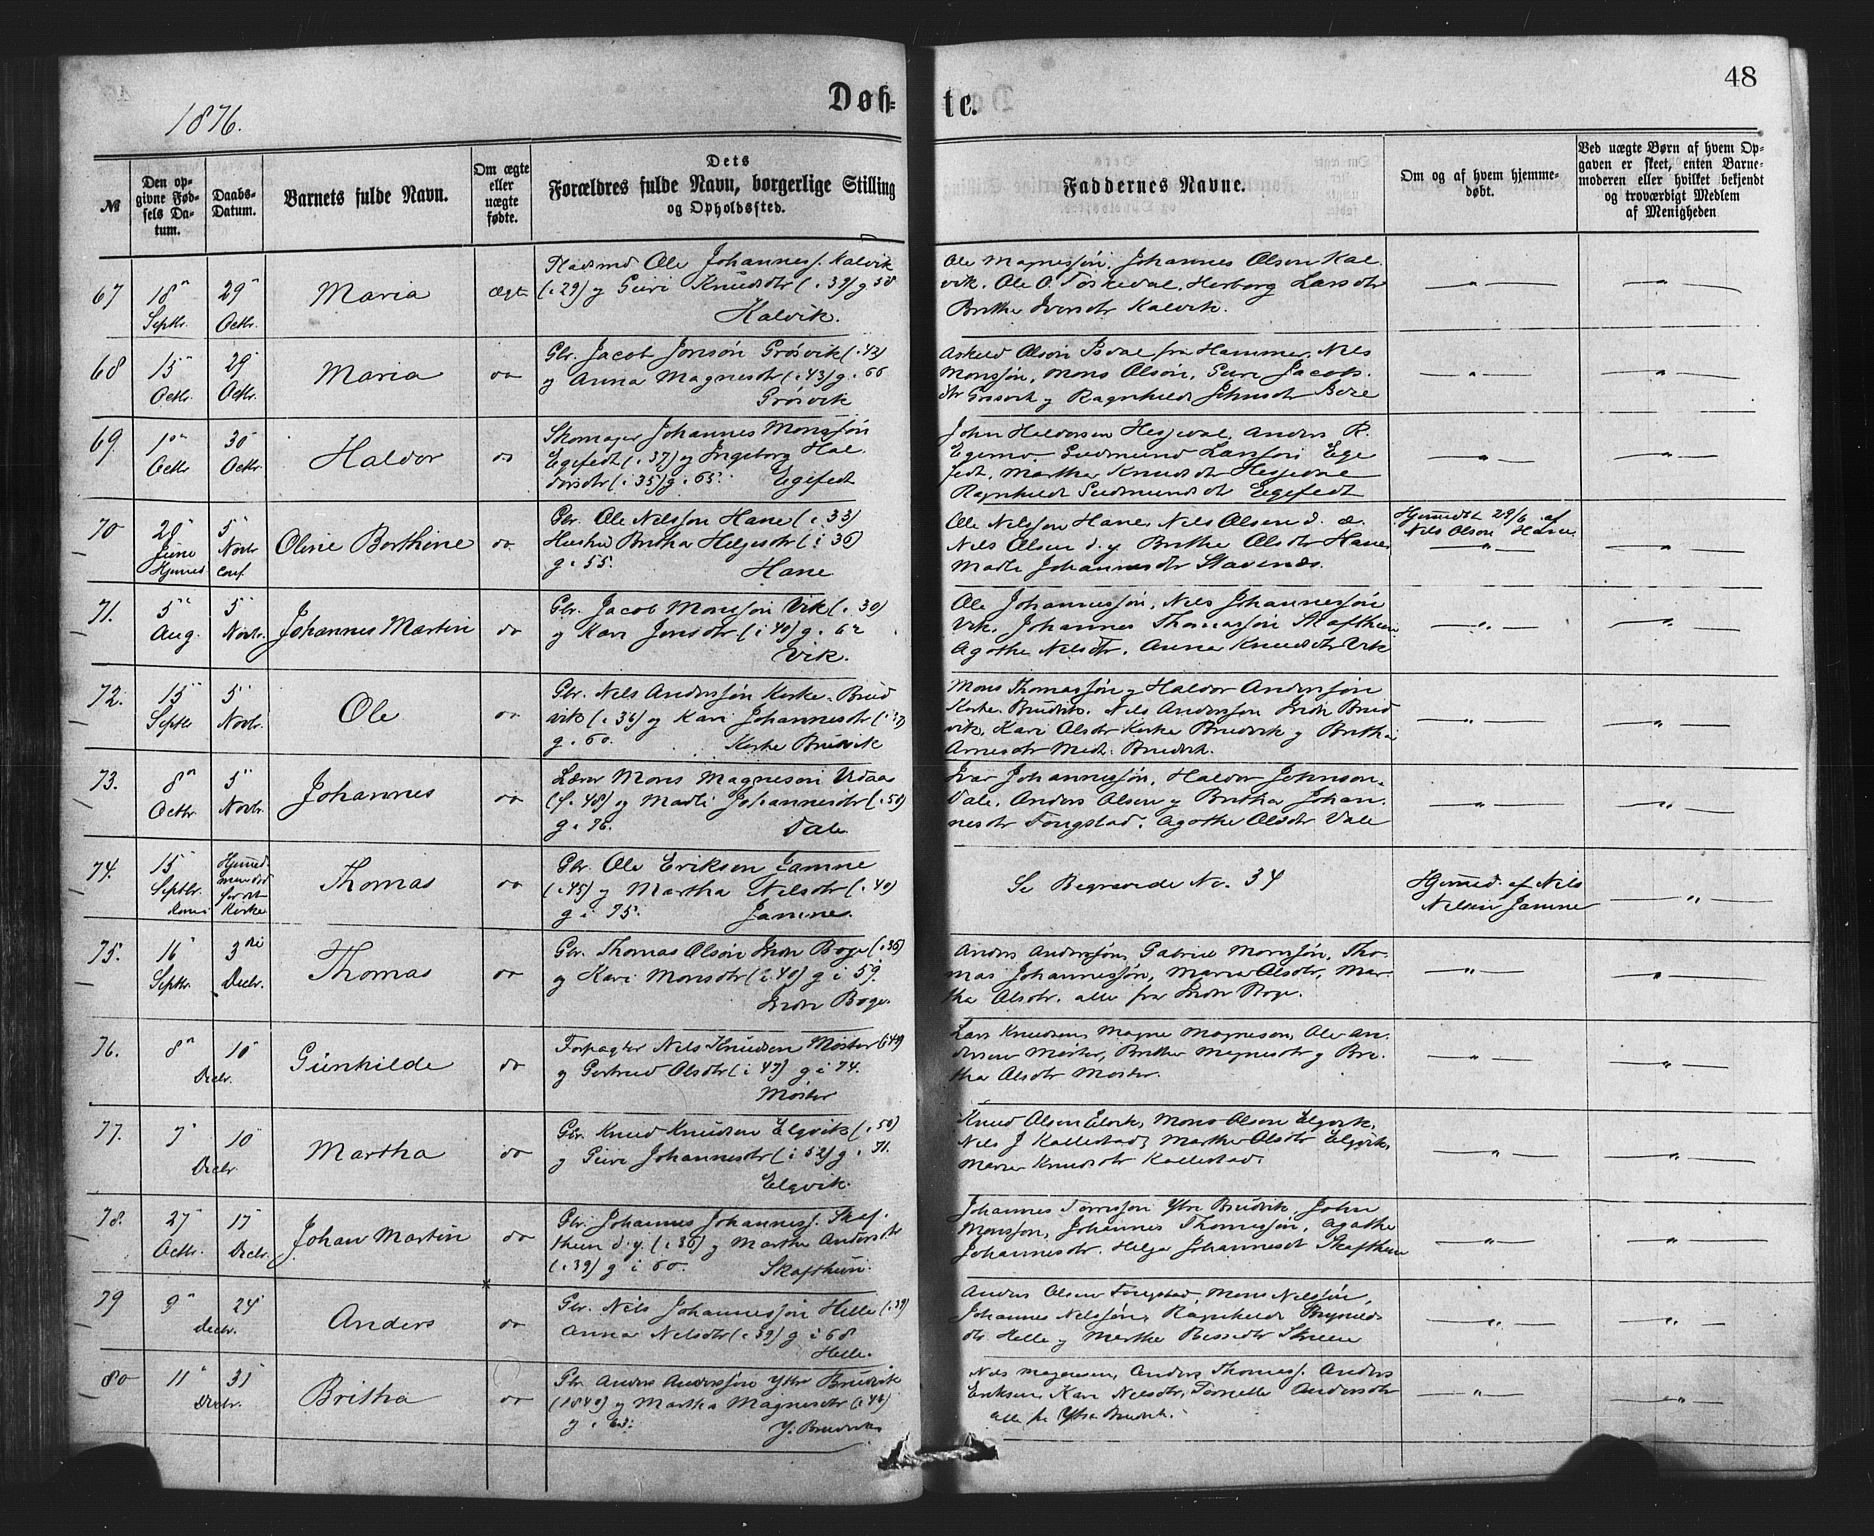 48
1876.
Døb-
te.
№
Den op-
givne Fød-
sels Da-
tum.
Daabs-
Datum.
Barnets fulde Navn.
Om ægte
eller
uægte
fødte.
Dets
Forældres fulde Navn, borgerlige Stilling
og Opholdssted.
Faddernes Navne.
Om og af hvem hjemme-
døbt.
Ved uægte Børn af hvem Op-
gaven er skeet, enten Barne-
moderen eller hvilket bekjendt
og troværdigt Medlem
af Menigheden
67
18
Septbr.
29
Octbr.
Maria
Ægte
Pladsmd Ole Johanness. Kalvik
(i 29) og Guri Knudsdtr (i 39) g 58
Kalvik.
Ole Magnessøn, Johannes Olsen Kal-
vik, Ole O. Toskedal, Herborg Larsdtr
Brithe Iversdtr Kalvik.
68
15
Octbr.
29
Octbr.
Maria
do
Gbr. Jacob Jonsøn Grøsvik (i 43)
og Anna Magnesdtr (i 43) g. 66
Grøsvik
Askeld Olsøn Isdal fra Hammer, Nils
Monssøn, Mons Olsøn, Guri Jacobs-
dtr Grøsvik og Ragnhilde Johnsdtr
69.
1
Octbr
30
Octbr.
Haldor
do
Skomager Johannes Monssøn
Egefedt (i 37) og Ingeborg Hal-
dorsdtr (i 35) g. 65. Egefedt
John Haldorsen Hesjedal, Anders R.
Egemo, Gudmund Larssøn Ege-
fedt, Martha Knudsdtr Hesjedal
Ragnhilde Gudmundsdtr Egefedt
70
28
Juni
Hjemed
5
Novbr
Conf.
Oline Berthine
do
Gbr. Ole Nilssøn Hane (i 33)
Hustru Britha Helgesdtr (i 36)
g. 55. Hane
Ole Nilssøn Hane, Nils Olsen d. æ.
Nils Olsen d. y. Brithe Olsdtr Hane
Madli Johannesdtr Stavenæs.
Hjemedøbt 29/6 af
Nils Olson Hane.
71.
5
Aug.
5
Novbr.
Johannes Martin
do
Gbr. Jacob Monssøn Vik (i 30)
og Kari Jonsdtr (i 40) g. 62
Vik.
Ole Johannessøn, Nils Johannessøn
Vik, Johannes Thomassøn Skafthun
Agothe Nilsdtr. Anna Knudsdtr Vik
72.
15
Septbr
5
Novbr.
Ole
do
Gbr. Nils Anderssøn Kirke-Brud-
vik (i 36) og Kari Johannesdtr
g. 60. Kirke Brudvik
Mons Thomassøn og Haldor Anderssøn
Kirke-Brudvik. Nils Anderssøn Indre Brud-
vik, Kari Olsdtr Kirke Brudvik og Britha
Arnesdtr Brudvik.
73.
8
Octbr.
5
Novbr.
Johannes
do
Lærer Mons Magneson Vdaa
(f. 48) og Madli Johannesdtr (i 50)
g. 76. Dale
Ivar Johannessøn, Haldor Johnson
Dale. Anders Olsen og Britha Johan-
nesdtr Fougstad. Agothe Olsdtr Dale
74.
15
Septbr.
Hjemmed
men død
før det
Kirke
Thomas
do
Gbr. Ole Eriksen Jamne
(i 45) og Martha Nilsdtr (i 40)
g i 75. Jamne.
Se Begravede No. 34
Hjemmed. af Nils
Nilssøn Jamne
75.
16
Septbr.
3die
Decbr.
Thomas
do
Gbr. Thomas Olsøn Indre Boge (i 36)
og Kari Monsdtr (i 40) g i 59.
Indre Boge
Anders Anderssøn, Gabriel Monssøn, Tho-
mas Johannessøn, Maria Olsdtr, Mar-
tha Olsdtr. alle fra Indre Boge.
76.
8
10
Decbr.
Gunhilde
do
Forpagter Nils Knudsen Mostør (i 49)
og Gertrud Olsdtr (i 47) g i 74.
Mostør
Lars Knudsen, Magne Magneson, Ole An-
dersen Mostør, Brithe Magnesdtr og Bri-
tha Olsdtr Mostør.
77.
7
10
Decbr
Martha
do
Gbr. Knud Knudsen Elgvik (i 50)
og Guri Johannesdtr (i 52) g. 71.
Elgvik.
Knud Olsen Elvik, Mons Olsen Elgvik,
Nils J Kallestad, Marthe Olsdtr Elgvik,
Maria Knudsdtr Kallestad.
78.
27
Octbr.
17
Decbr.
Johan Martin
do
Gbr. Johannes Johanness. Skaf-
thun d. y. (i 36) og Marthe Andersdtr
(i 39) g i 60. Skafthun.
Johannes Tormssøn Ytre Brudvik, John
Monssøn, Johannes Thomessøn, Agathe
Johannesdtr. Helga Johannesdt Skafthun
79
9
24
Decbr.
Anders
do
Gbr. Nils Johannessøn Helle (i 39)
Anna Nilsdtr (i 39) g i 68
Helle.
Anders Olsen Fougstad, Mons Nilssøn,
Johannes Nilssøn, Ragnhilde Brynild-
dtr Helle og Marthe
80
11
31
Decbr.
Britha
do
Gbr Anders Anderssøn Ytre Brudvik
(1840) og Martha Magnesdtr
Y. Brudvik
Nils Magnesen, Anders Thomass. Anders
Eriksen, Kari Nilsdtr, Andersdtr
alle fra Ytre Brudvik.